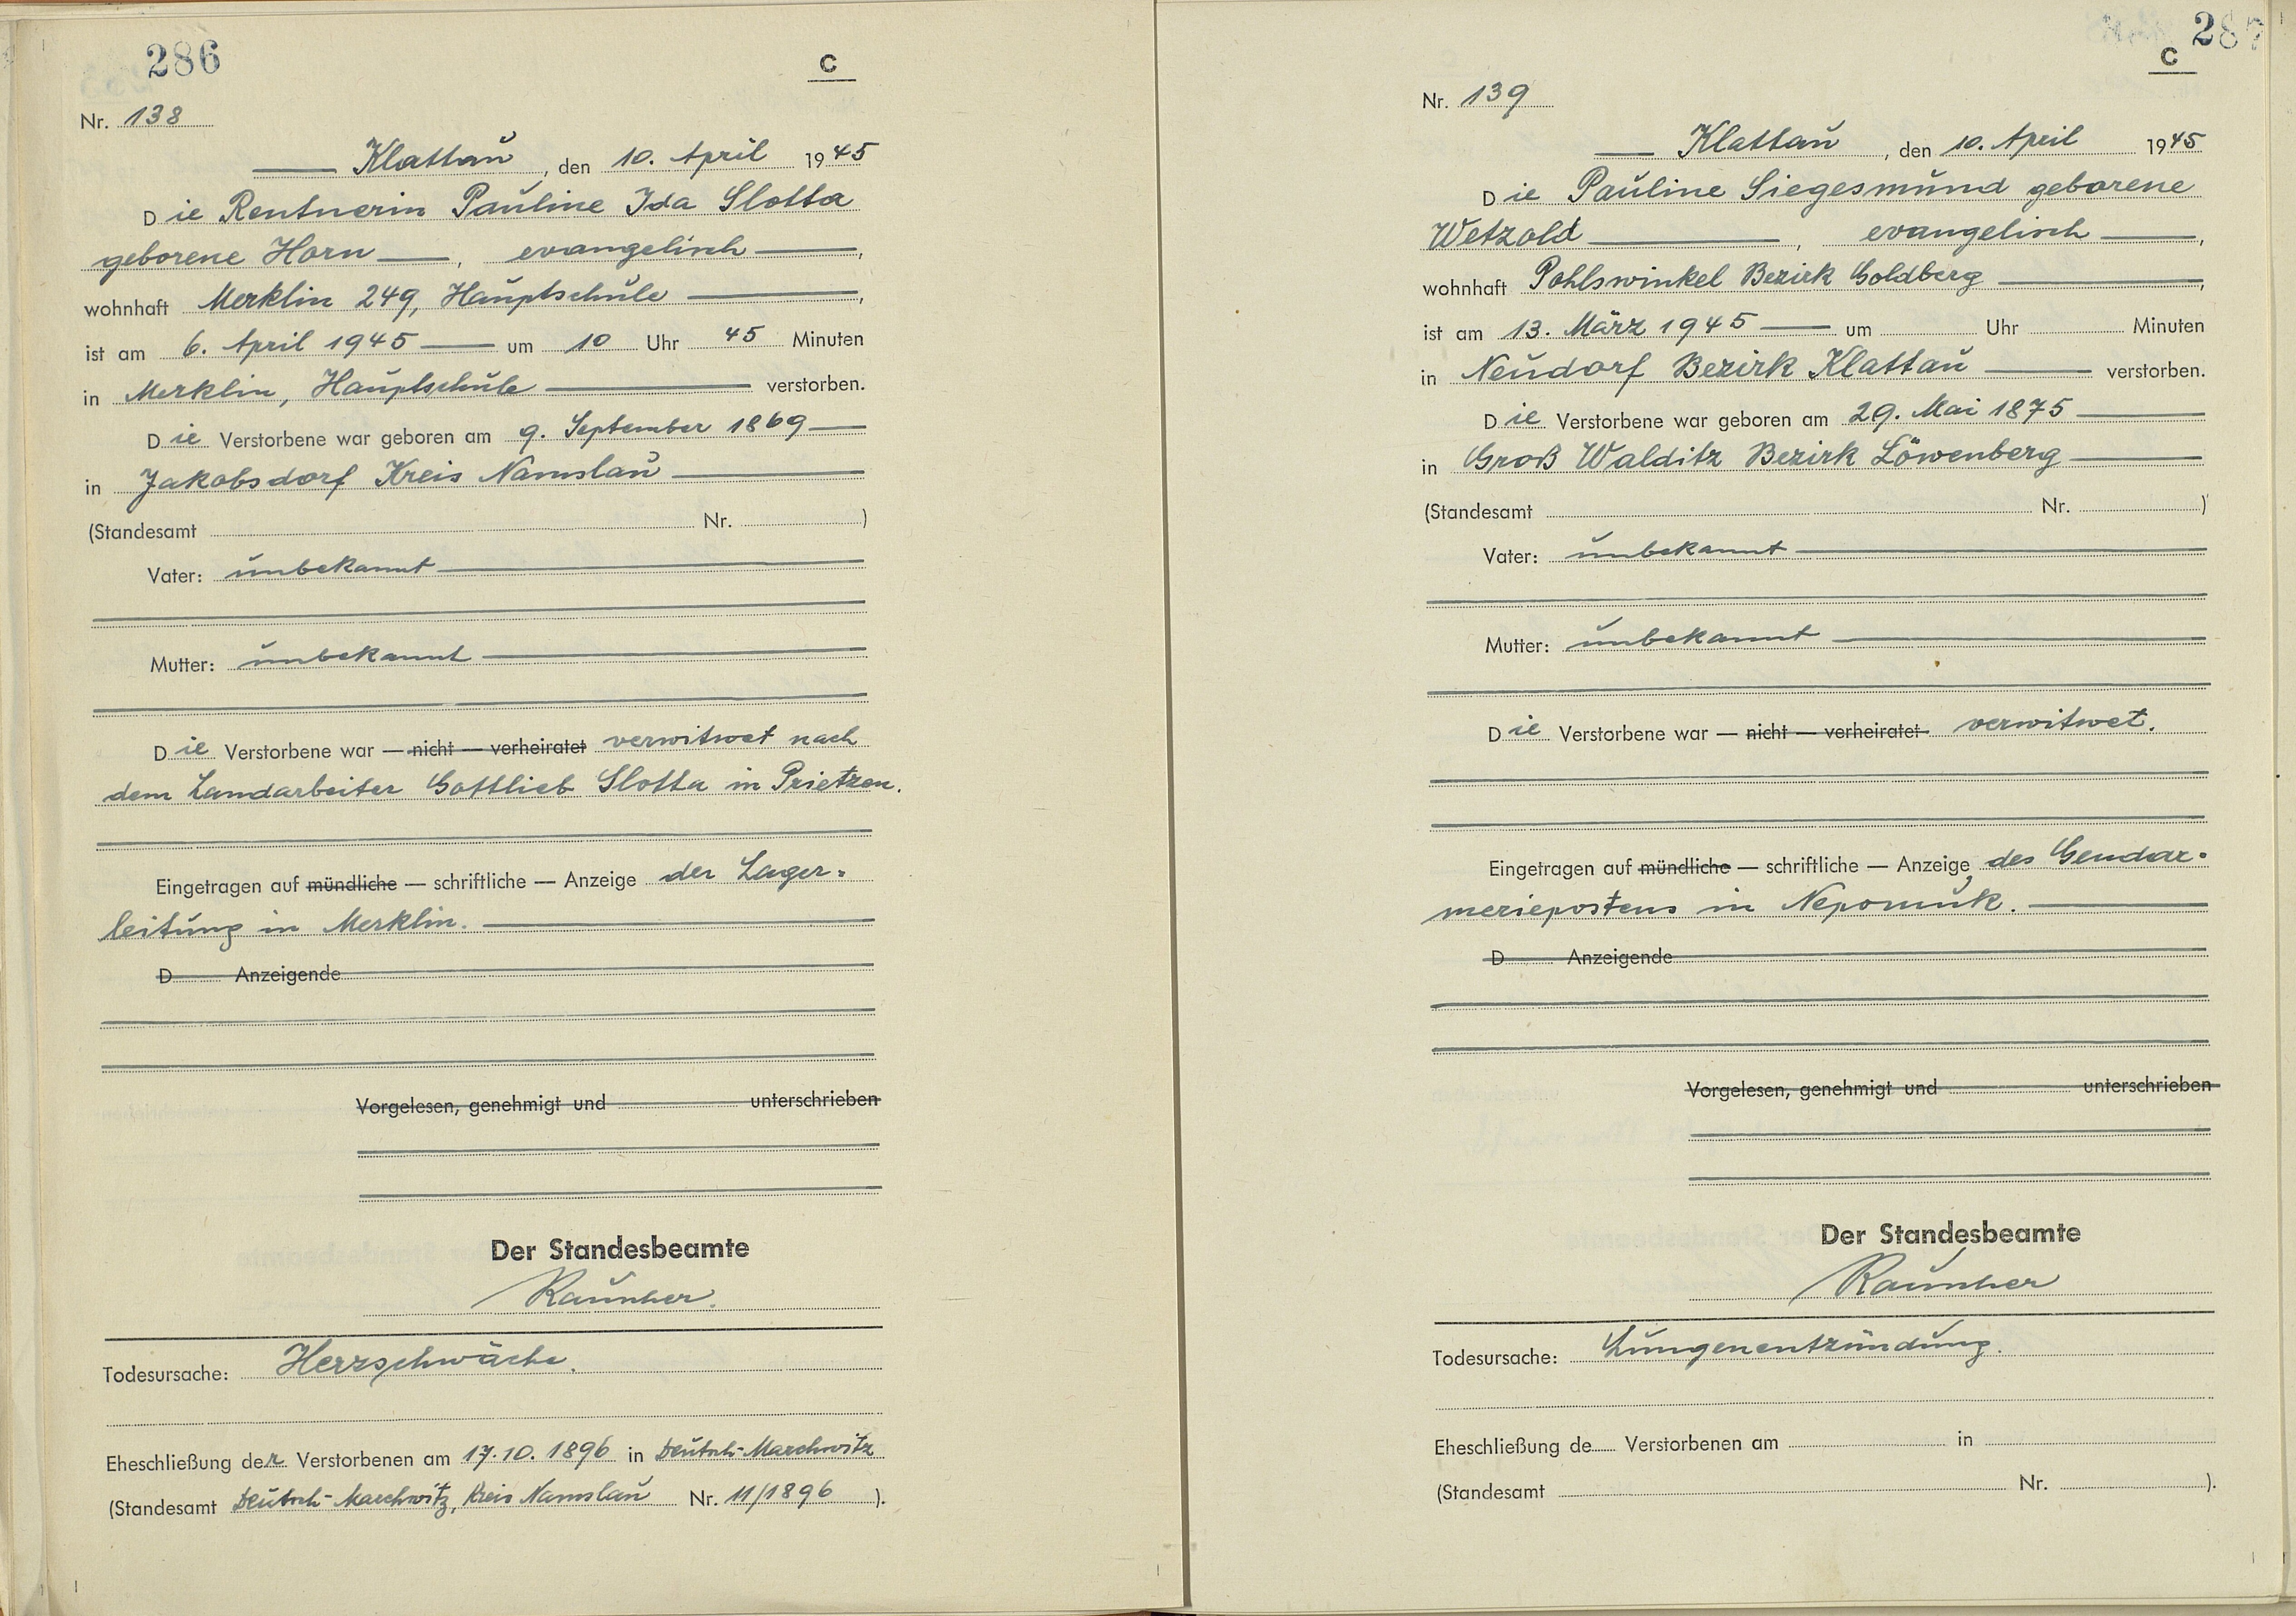 286
C
Nr. 138
Klattau, den 10. April 1945
Die Rentnerin Pauline Ida Slotta
geborene Horn, evangelisch,
wohnhaft Merklin 249, Hauptschule,
ist am 6. April 1945 um 10 Uhr 45 Minuten
in Merklin, Hauptschule verstorben.
Die Verstorbene war geboren am 9. September 1869
in Jakobsdorf Kreis Namslau
(Standesamt Nr. )
Vater: unbekannt
Mutter: unbekannt
Die Verstorbene war — nicht — verheiratet verwitwet nach
dem Landarbeiter Gottlieb Slotta in Prietzen.
Eingetragen auf mündliche — schriftliche — Anzeige der Lager-
leitung in Merklin.
D Anzeigende
Vorgelesen, genehmigt und unterschrieben
Der Standesbeamte
Todesursache: Herzschwäche.
Eheschließung der Verstorbenen am 17.10.1896 in Deutsch-Marchwitz
(Standesamt Deutsch-Marchwitz, Kreis Namslau Nr. 11/1896 ).
287
C
Nr. 139
Klattau, den 10. April 1945
Die Pauline Siegesmund geborene
Wetzold, evangelisch,
wohnhaft Pohlswinkel Bezirk Goldberg,
ist am 13. März 1945 um Uhr Minuten
in Neudorf Bezirk Klattau verstorben.
Die Verstorbene war geboren am 29. Mai 1875
in Groß Walditz Bezirk Löwenberg
(Standesamt Nr. )
Vater: unbekannt
Mutter: unbekannt
Die Verstorbene war — nicht — verheiratet verwitwet.
Eingetragen auf mündliche — schriftliche — Anzeige des Gendar-
meriepostens in Nepomuk.
D Anzeigende
Vorgelesen, genehmigt und unterschrieben
Der Standesbeamte
Todesursache: Lungenentzündung.
Eheschließung de Verstorbenen am in
(Standesamt Nr. ).